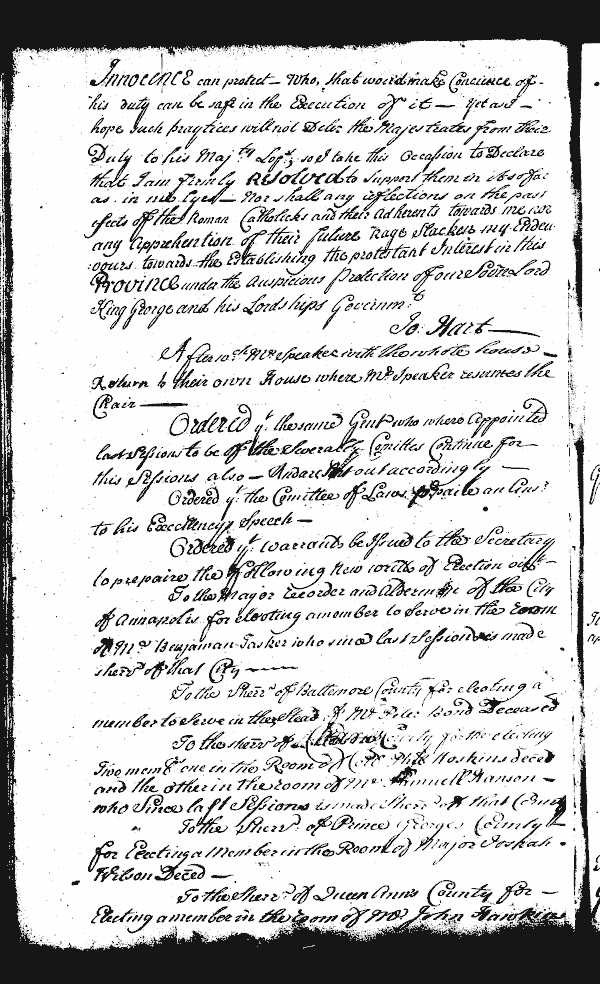 Innocence can protect — Who, that would make Concience of —
his duty can be safe in the Execution of it — yet as I —
hope such practices will not Deter the Majestrates from their
Duty to his Maj:ty so I take this Occasion to Declare
that I am firmly Resolved to support them in its
as in me lyes — Nor shall any reflections on the past
Efects of the Roman Catholicks and their Adherents towards me nor
any Apprehention of their future Rage Slacken my Endea
vours towards the Establishing the protestant Interest in this
Province under the Auspicious Protection of our Lord
King George and his Lordships Governm:t
Jo: Hart —
Afterw:ch Mr Speaker with the whole house —
Return to their own House where Mr Speaker resumes the
Chair —
Ordered y:t the same Gent who where Appointed
last Sessions to be of the Severall Comittes Continue for
this Sessions also — And are out accordingly —
Ordered y:t the Comittee of Laws prepaire an Ans:r
to his Excellencys Speech —
Ordered y:t warrants be Issued to the Secretary
to prepaire the following New writts of Election viz:t —
To the Mayor recorder and Aldermen of the City
of Annapolis for electing a member to Serve in the room
of Mr Benjaman Tasker who since last Session is made
sherr of that City —
To the Sherr of Baltemore County for electing a
member to Serve in the Stead of Mr Peter Bond Deceased
To the sherr of County for the electing
Two mem:rs one in the Room of Phil Hoskins deced
and the other in the room of Mr Samuell Hanson —
who Since last Sessions is made Sherr of that County
To the Sherr of Prince Georges County —
for Electing a Member in the Room of Major Josiah
Wilson Deced —
To the Sherr of Queen Anns County for —
Electing a member in the room of Mr John Hawkins